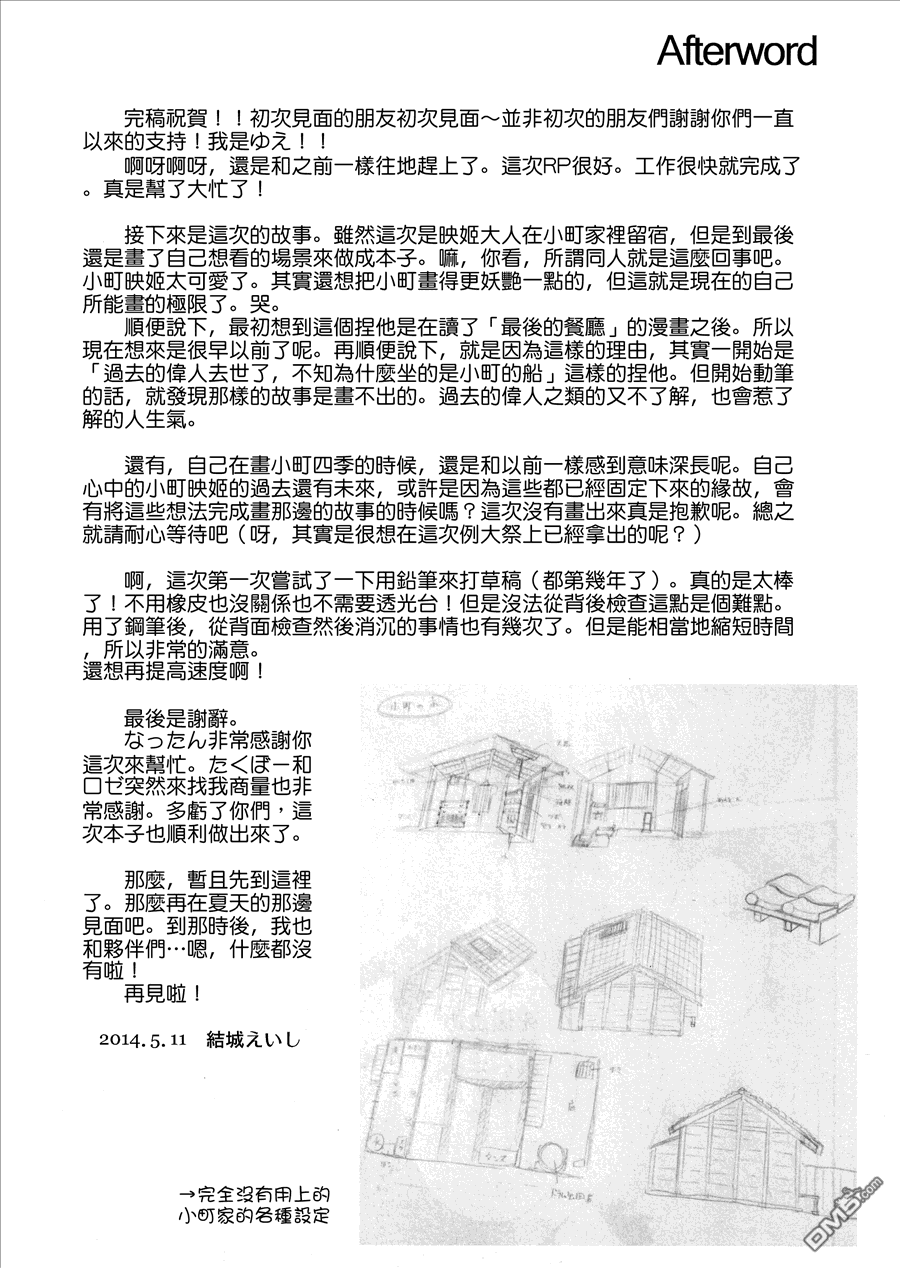 Afterword
完稿祝賀！！初次見面的朋友初次見面～並非初次的朋友們謝謝你們一直
以來的支持！我是ゆえ！！
啊呀啊呀，還是和之前一樣往地趕上了。這次RP很好。工作很快就完成了
。真是幫了大忙了！
接下來是這次的故事。雖然這次是映姬大人在小町家裡留宿，但是到最後
還是畫了自己想看的場景來做成本子。嘛，你看，所謂同人就是這麼回事吧。
小町映姬太可愛了。其實還想把小町畫得更妖艷一點的，但這就是現在的自己
所能畫的極限了。哭。
順便說下，最初想到這個捏他是在讀了「最後的餐廳」的漫畫之後。所以
現在想來是很早以前了呢。再順便說下，就是因為這樣的理由，其實一開始是
「過去的偉人去世了，不知為什麼坐的是小町的船」這樣的捏他。但開始動筆
的話，就發現那樣的故事是畫不出的。過去的偉人之類的又不了解，也會惹了
解的人生氣。
還有，自己在畫小町四季的時候，還是和以前一樣感到意味深長呢。自己
心中的小町映姬的過去還有未來，或許是因為這些都已經固定下來的緣故，會
有將這些想法完成畫那邊的故事的時候嗎？這次沒有畫出來真是抱歉呢。總之
就請耐心等待吧（呀，其實是很想在這次例大祭上已經拿出的呢？）
啊，這次第一次嘗試了一下用鉛筆來打草稿（都第幾年了）。真的是太棒
了！不用橡皮也沒關係也不需要透光台！但是沒法從背後檢查這點是個難點。
用了鋼筆後，從背面檢查然後消沉的事情也有幾次了。但是能相當地縮短時間
，所以非常的滿意。
還想再提高速度啊！
最後是謝辭。
なったん非常感謝你
這次來幫忙。たくぼー和
ロゼ突然來找我商量也非
常感謝。多虧了你們，這
次本子也順利做出來了。
那麼，暫且先到這裡
了。那麼再在夏天的那邊
見面吧。到那時後，我也
和夥伴們…嗯，什麼都沒
有啦！
再見啦！
2014.5.11 結城えいし
→完全沒有用上的
小町家的各種設定
小町の家
タンス
DM5.com